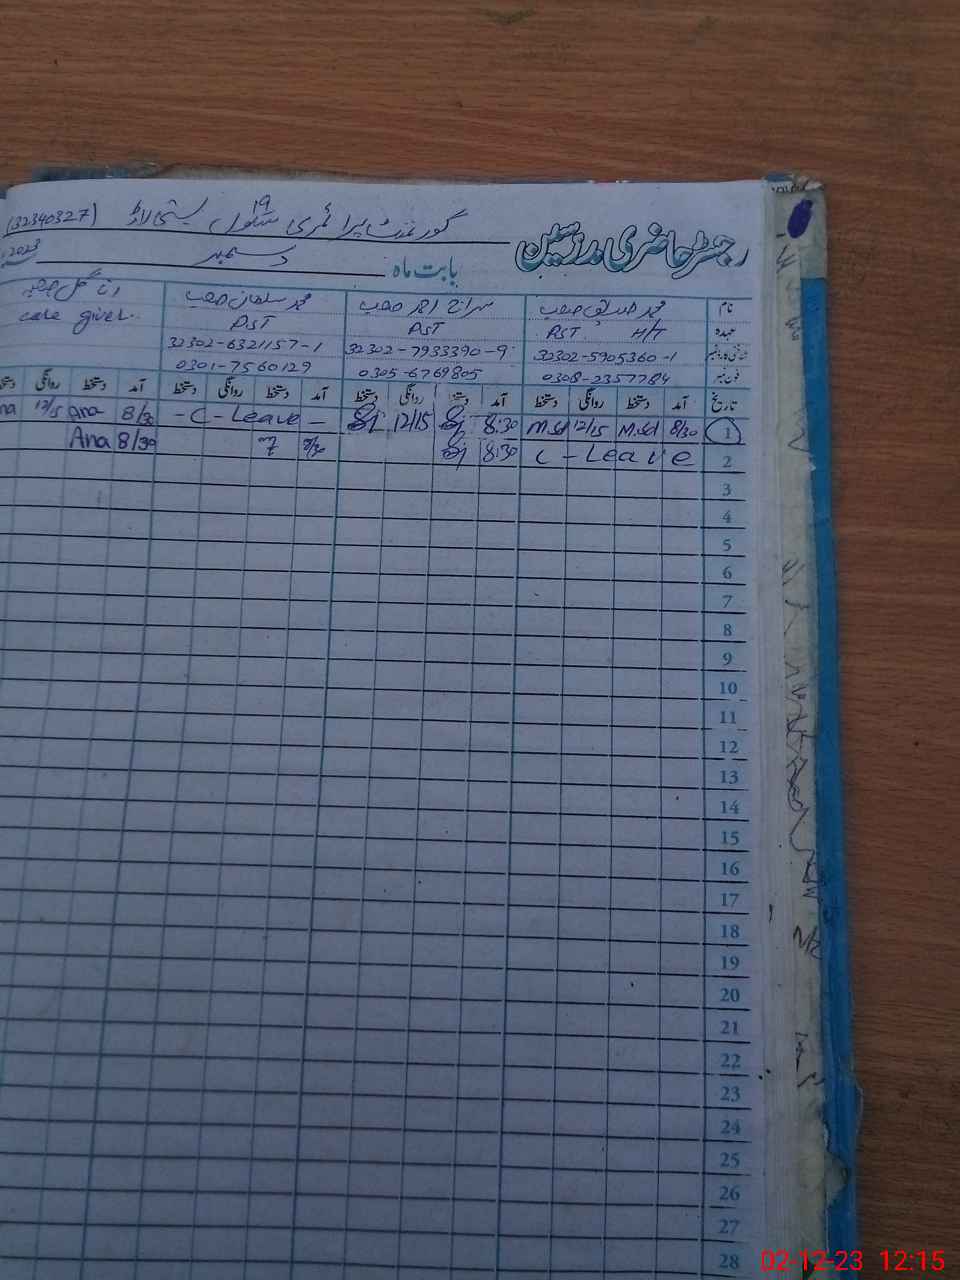 رجسٹر حاضری مدرسین گورنمنٹ پرائمری سکول بستی لاڑ (32340327)
بابت ماہ دسمبر 2023
نام محمد صدیق صاحب سراج احمد صاحب محمد سلمان صاحب
عہدہ PST H/T PST PST care giver.
شناختی کارڈ نمبر 32302-5905360-1 32302-7933390-9 32302-6321157-1
فون نمبر 0308-2357784 0305-6769805 0301-7560129
تاریخ آمد دستخط روانگی دستخط آمد دستخط روانگی دستخط آمد دستخط روانگی دستخط آمد دستخط روانگی دستخط
1 8/30 M.Sd 12/15 M.Sd 8:30 Sj 12/15 Sj - C - Leave - 8/30 Ana 12/15
2 C - Leave 8:30 Sj 8/30 8/30 Ana
3
4
5
6
7
8
9
10
11
12
13
14
15
16
17
18
19
20
21
22
23
24
25
26
27
28
02-12-23 12:15